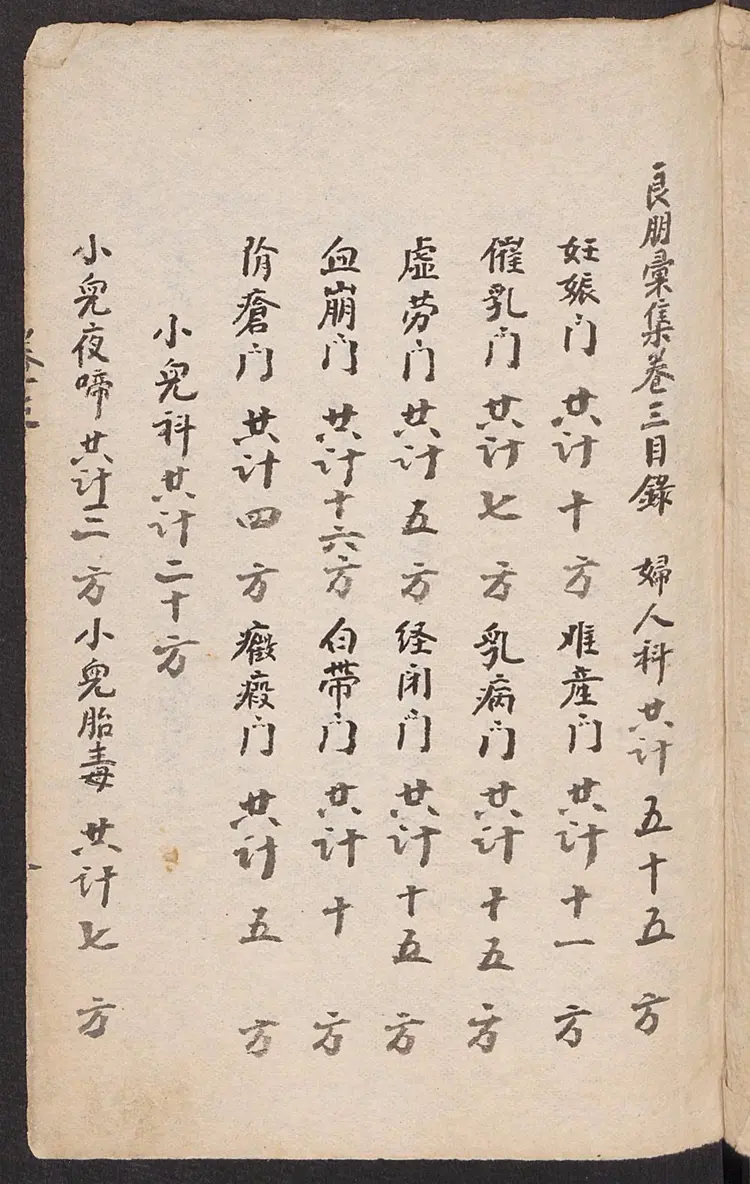 良朋彙集卷三目錄 婦人科共计五十五方
妊娠门共计十方难產门共计十一方
催乳门共计七方乳病门共计十五方
虛劳门共计五方经闭门共计十五方
血崩门共计十六方白带门共计十方
阴瘡门共计四方癥瘕门共计五方
小兒科共计二十方
小兒夜啼共计二方小兒胎毒共计七方